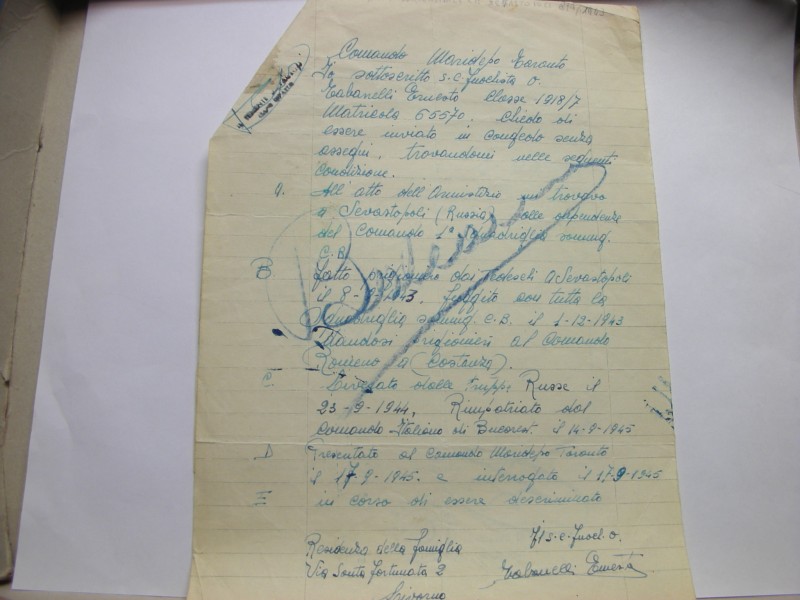 Comando Maridepo Taranto
Io sottoscritto s.c. Fuochista O.
Tabanelli Ernesto Classe 1918/7
Matricola 65570. Chiedo di
essere inviato in congedo senza
assegni, trovandomi nelle seguenti
condizione.
All'atto dell'Armistizio mi trovavo
a Sevastopoli (Russia) alle dipendenze
del Comando 1ª Squadriglia sommg.
C.B.
B Fatto prigioniero dai Tedeschi a Sevastopoli
il 8- -1943. Fuggito con tutta la
Squadriglia sommg. C.B. il 1-12-1943
dandosi prigionieri al Comando
Romeno a (Costanza).
C. Liberato dalle truppe Russe il
23-9-1944, Rimpatriato dal
Comando Italiano di Bucarest. il 14-9-1945
D Presentato al Comando Maridepo Taranto
il 17-9-1945. e interrogato il 17-9-1945
E in corso di essere descriminato
Residenza della famiglia Il s.c. Fuoch. O.
Via Santa Fortunata 2 Tabanelli Ernesto
Livorno